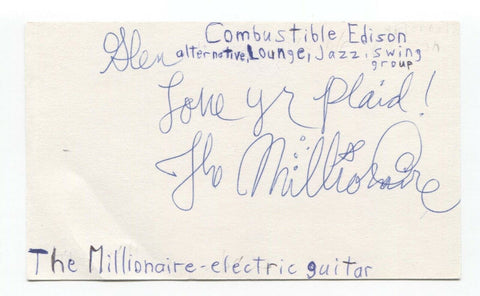 Combustible Edison
Glen alternative, Lounge, Jazz, swing
group
Love yr plaid!
The Millionaire
The Millionaire-electric guitar